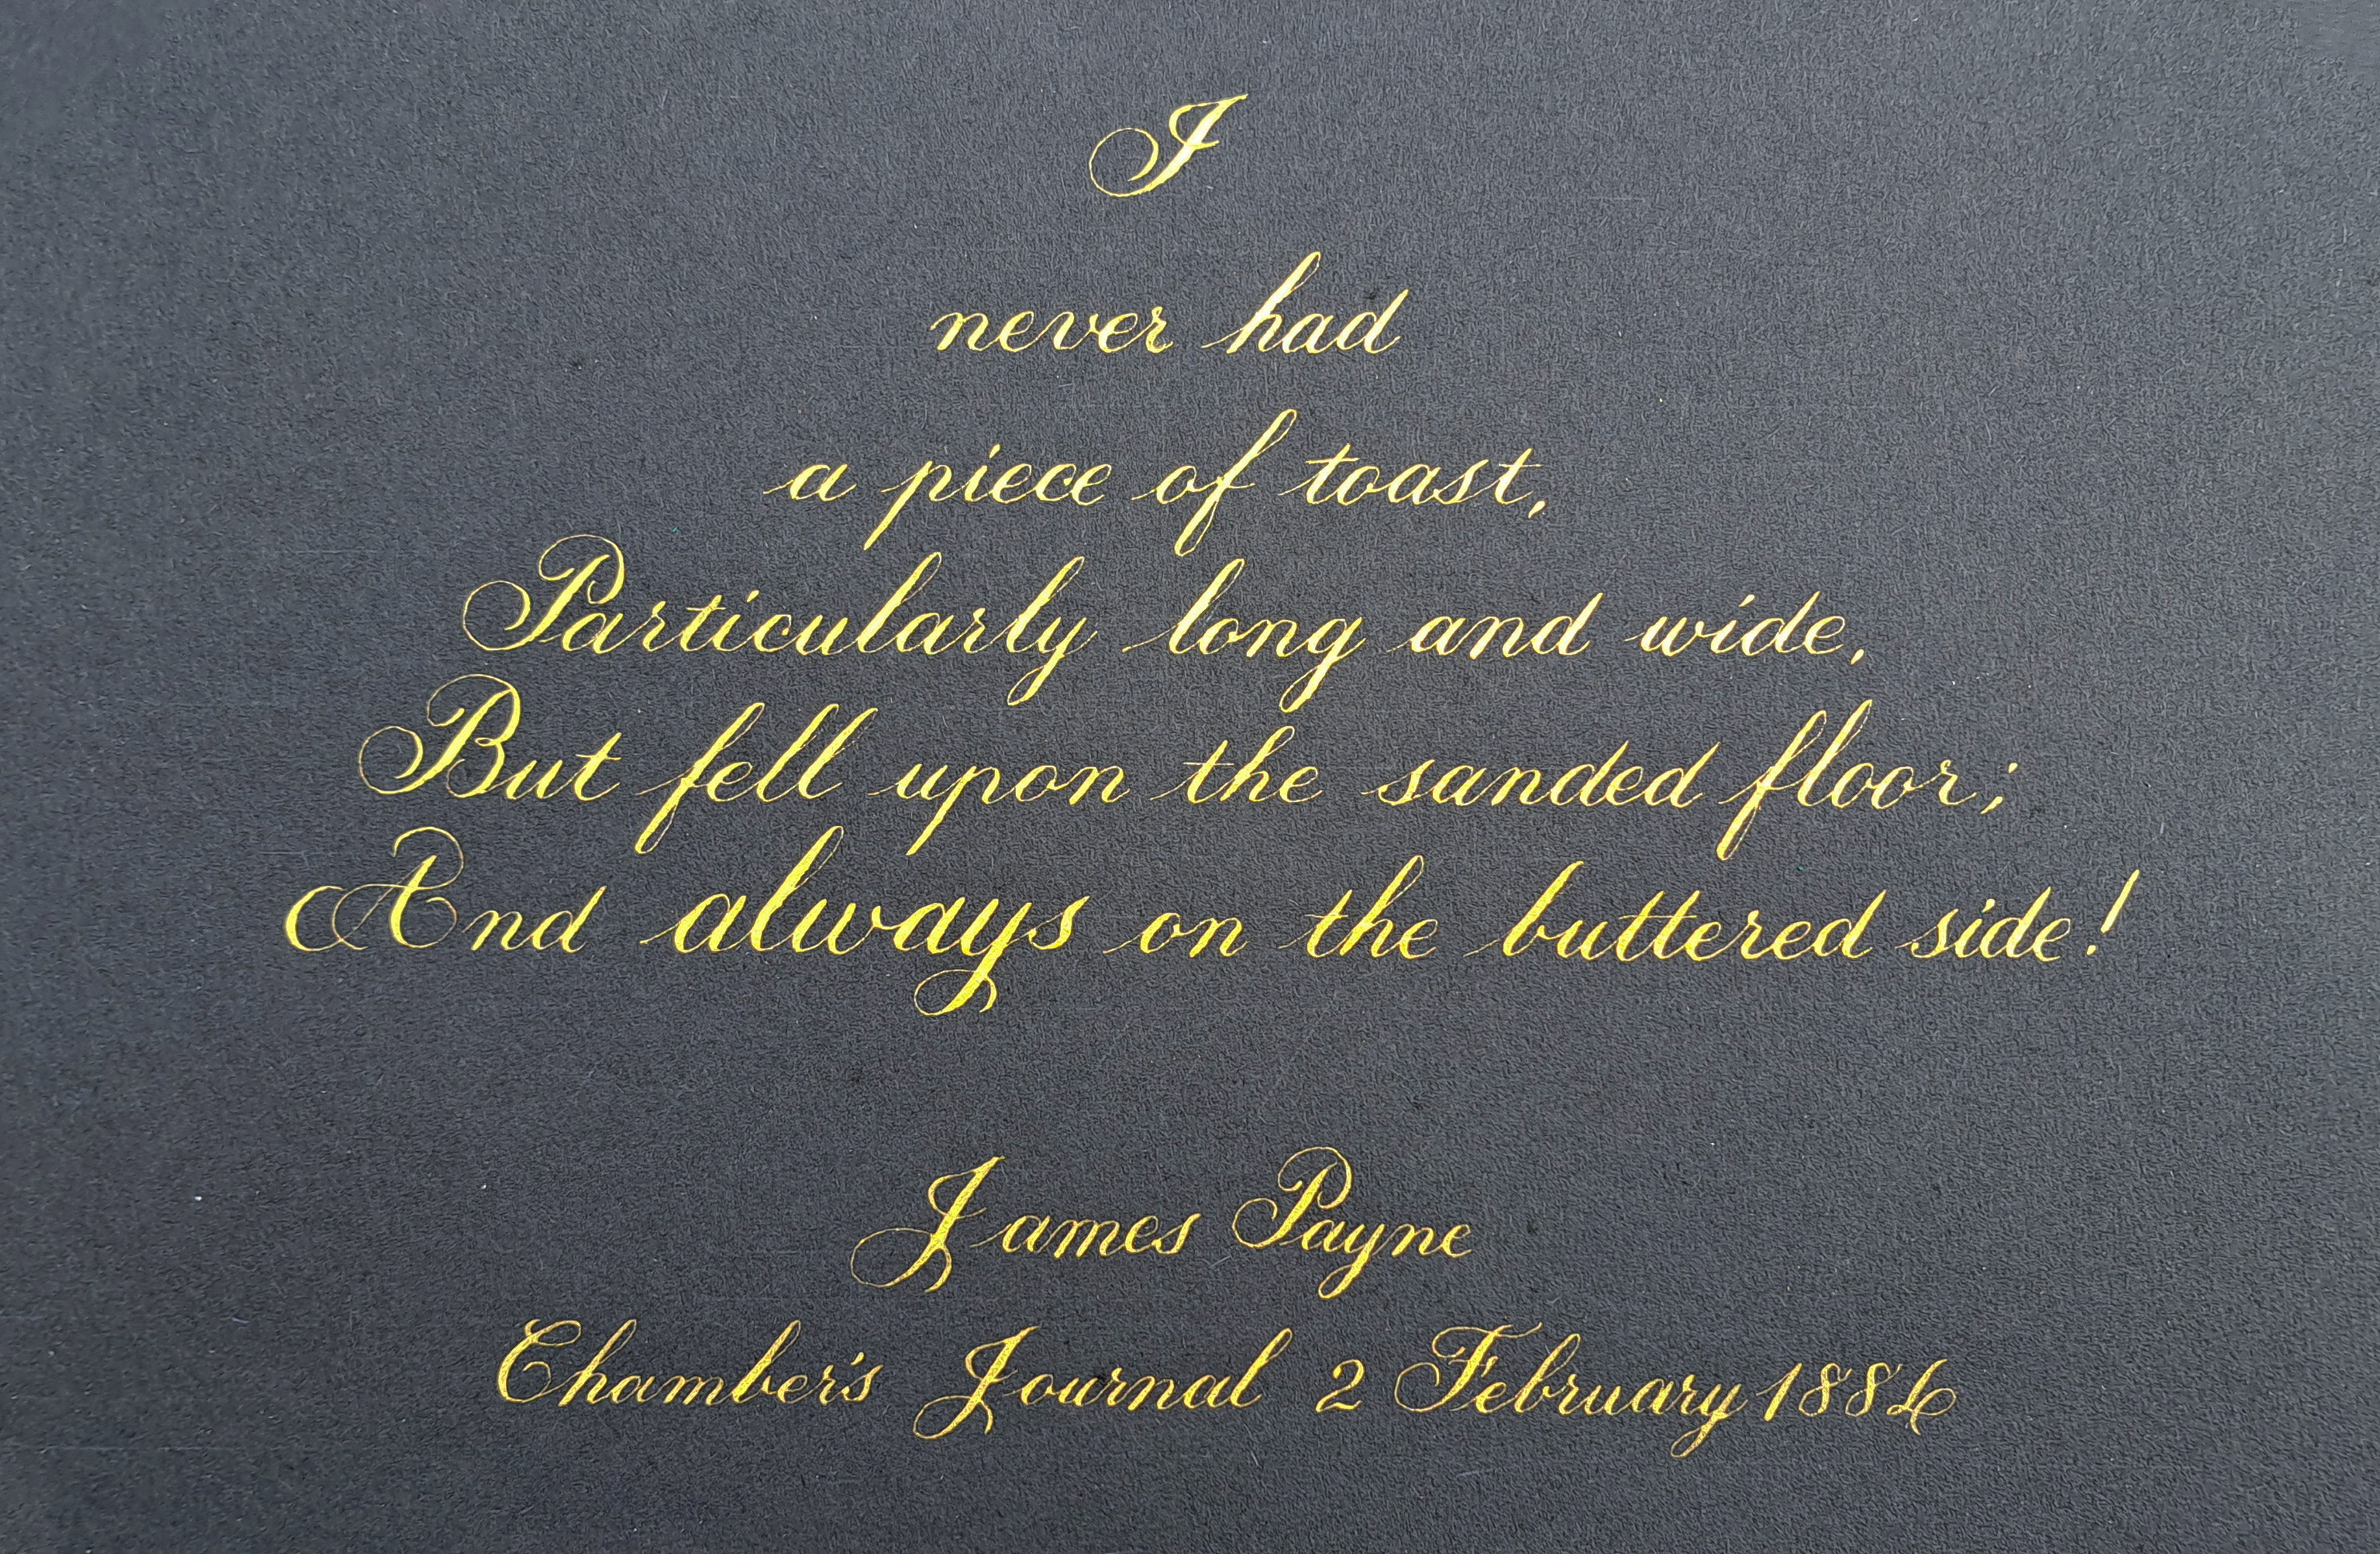 I
never had
a piece of toast,
Particularly long and wide,
But fell upon the sanded floor;
And always on the buttered side!
James Payne
Chamber's Journal 2 February 1884